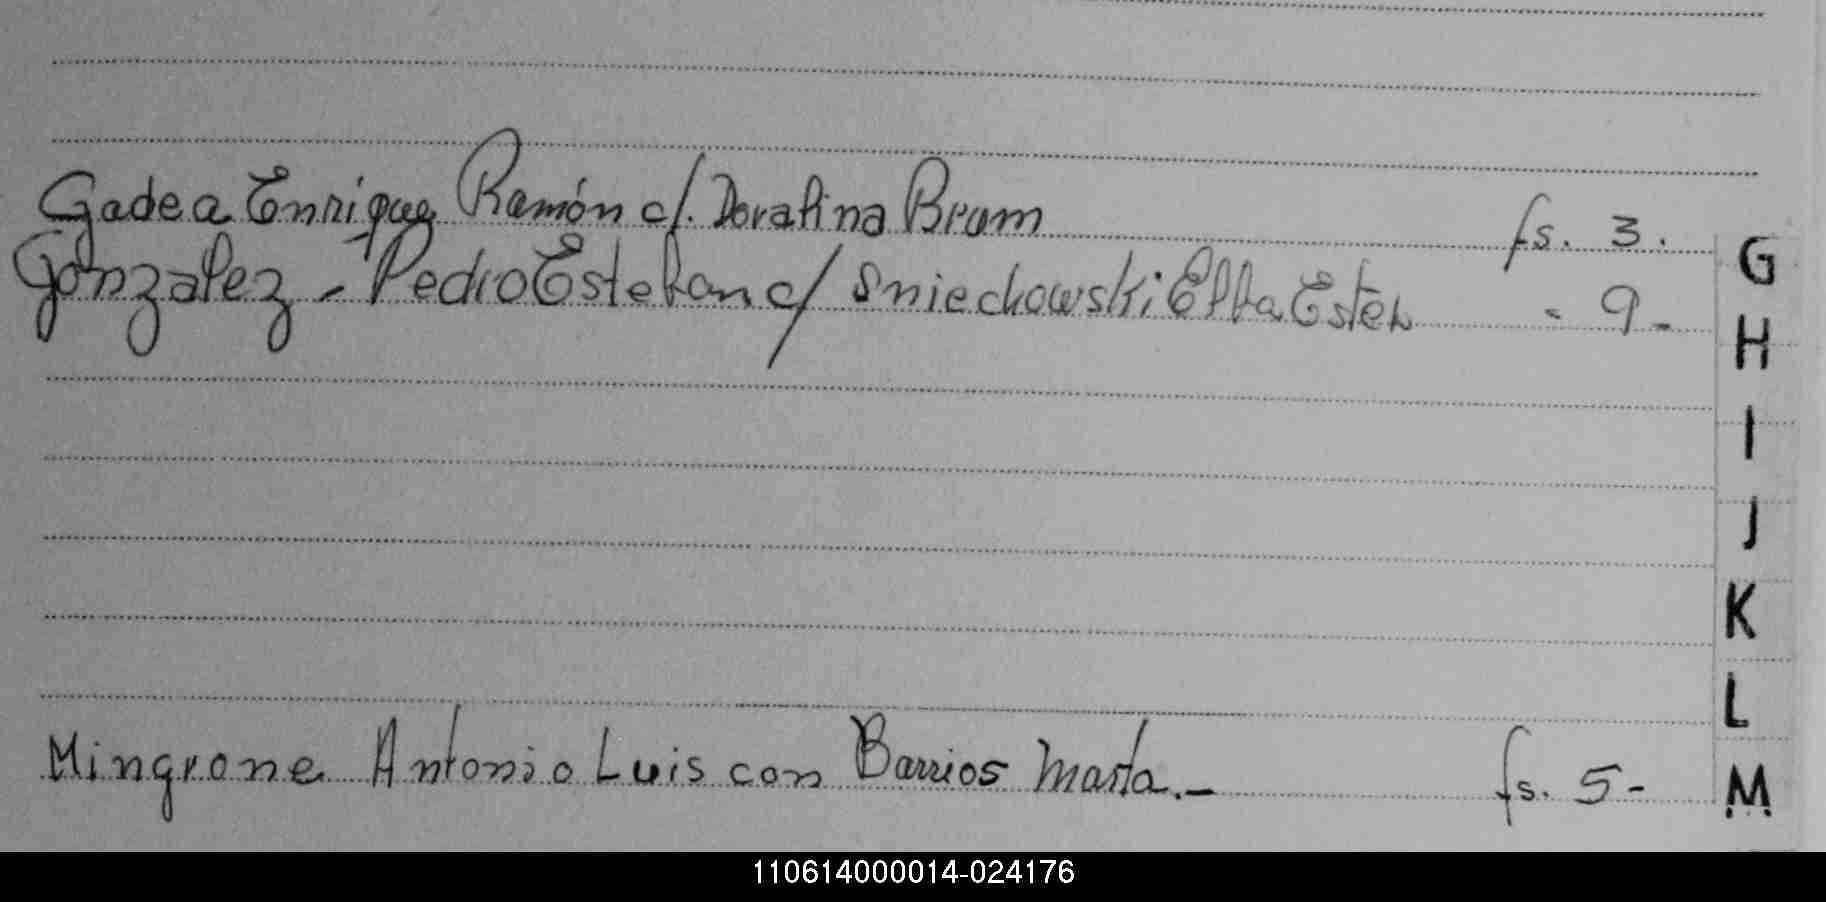 Gadea Enrique Ramón c/. Doralina Brum fs. 3.
Gonzalez - Pedro Esteban c/ Sniechowski Elba Ester " 9-
G
H
I
J
K
L
Mingrone Antonio Luis con Barrios Marta.- fs. 5-
M
110614000014-024176